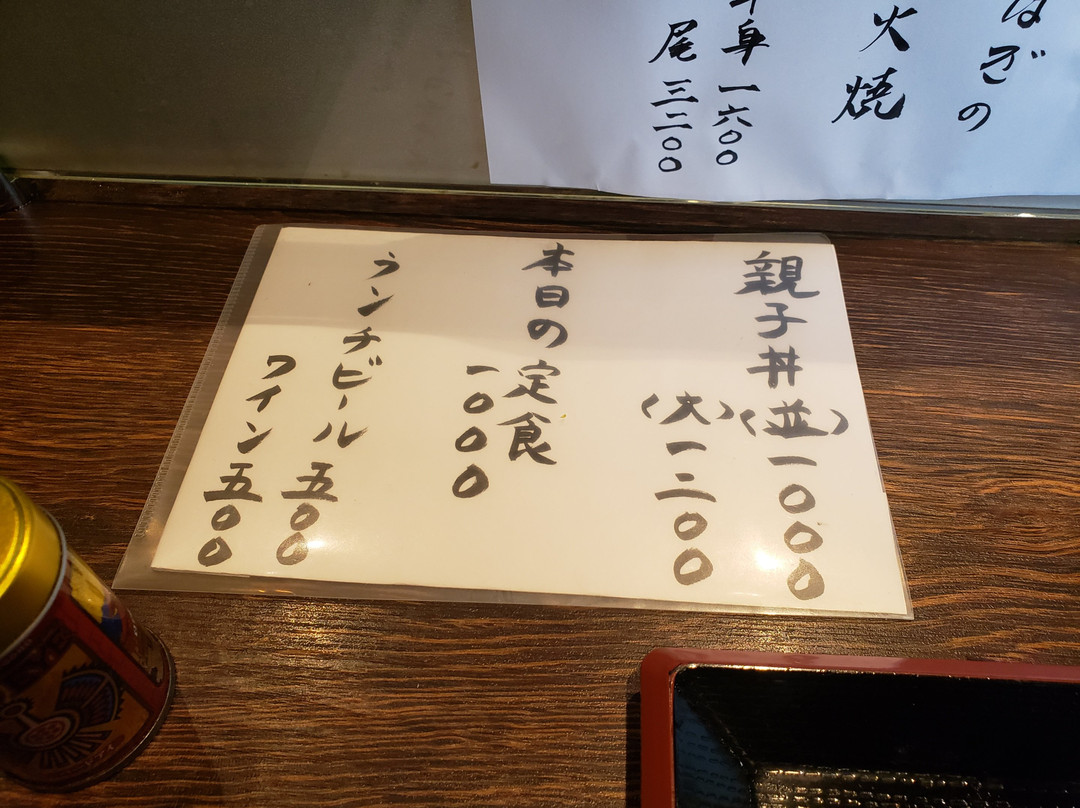 はぎの
火焼
半身 一六〇〇
尾 三二〇〇
親子丼(並)一〇〇〇
(大)一二〇〇
本日の定食
一〇〇〇
ランチビール 五〇〇
ワイン 五〇〇